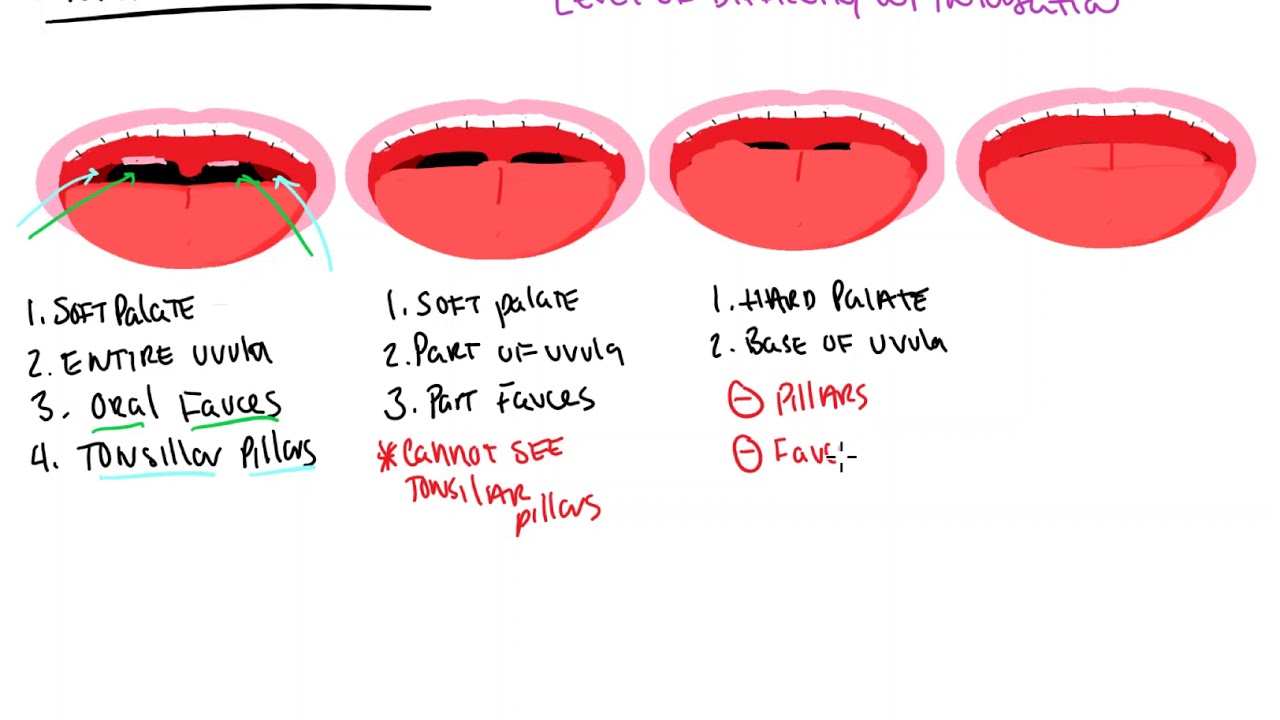 LEVEL OF DIFFICULTY W/ INTUBATION
1. SOFT PalaTE
2. ENTIRE UVUla
3. ORal Fauces
4. TONSillar Pillars
1. SOFT palaTE
2. PaRT OF UVUla
3. PaRT Fauces
*CaNNOT SEE
TONSilAR
pillars
1. HARD PalATE
2. BaSE OF UVUla
⊖ PillARS
⊖ Fauc